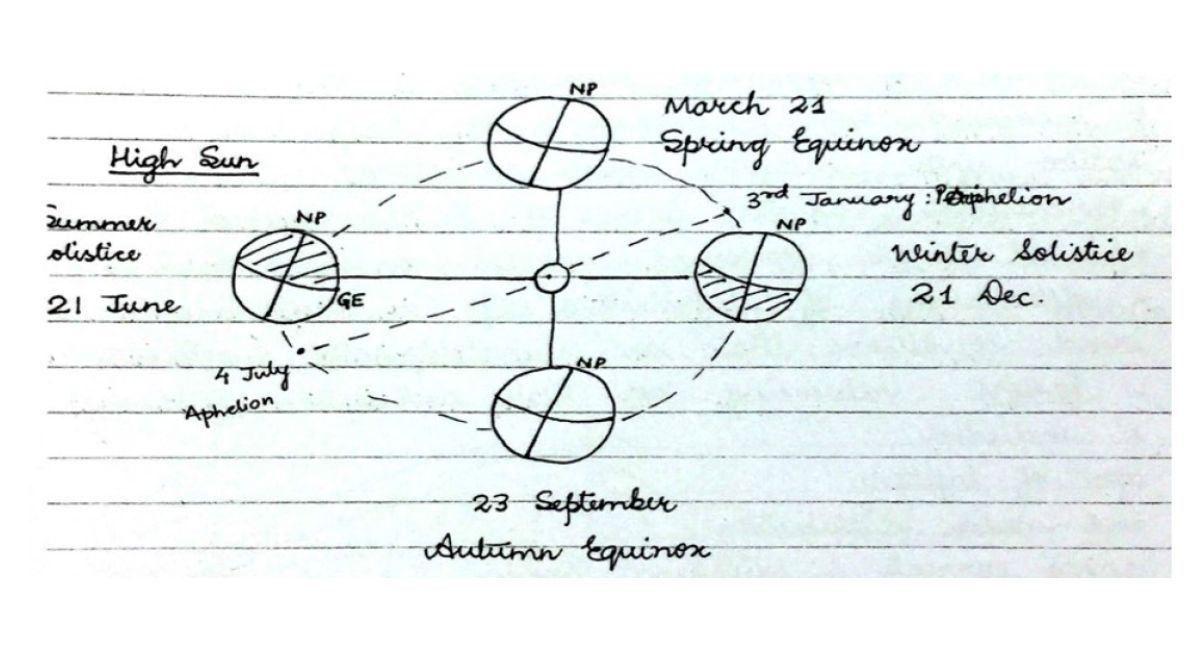 NP
March 21
Spring Equinox
High Sun
3rd January :
Summer
olistice
21 June
NP
GE
NP
Winter Solistice
21 Dec.
4 July
Aphelion
NP
23 September
Autumn Equinox